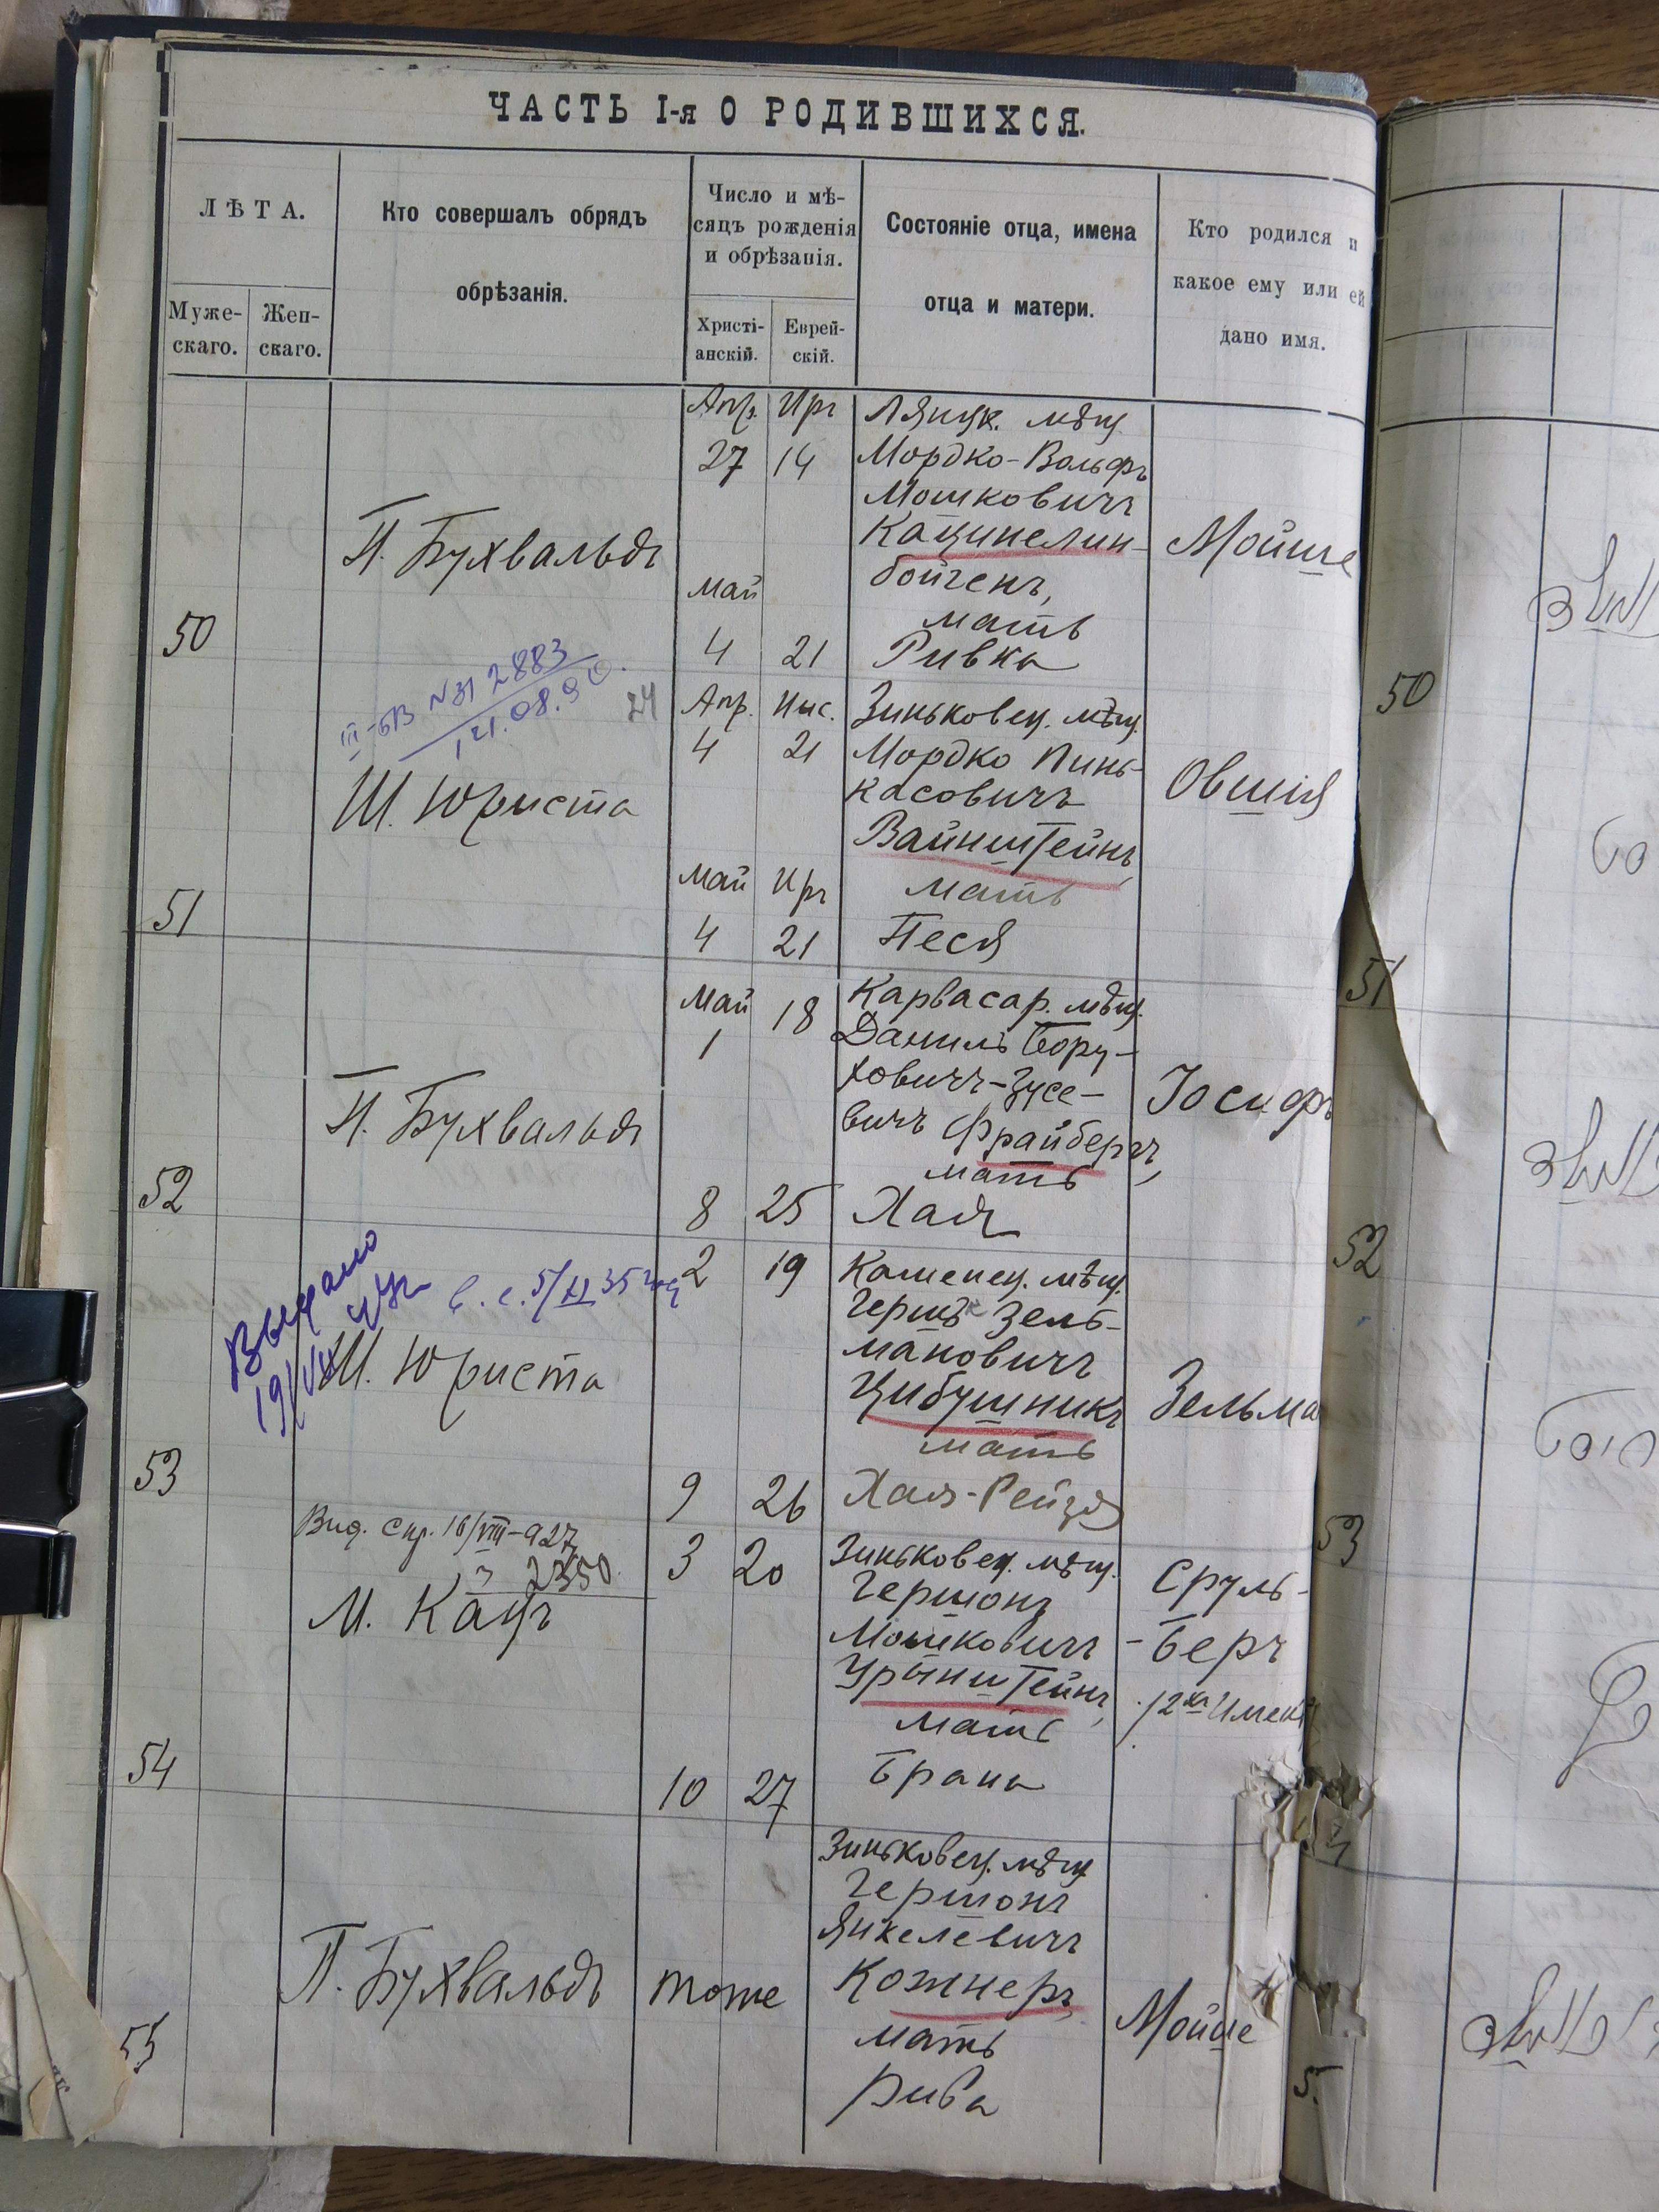 ЧАСТЬ I-я О РОДИВШИХСЯ.
ЛѢТА.
Муже-
скаго.
Жен-
скаго.
Кто совершалъ обрядъ
обрѣзанія.
Число и мѣ-
сяцъ рожденія
и обрѣзанія.
Христі-
анскій.
Еврей-
скій.
Состояніе отца, имена
отца и матери.
Кто родился и
какое ему или ей
дано имя.
50
П. Бухвальдъ
Апр. Иръ
27 14
Май
4 21
Ляцк. мѣщ.
Мордко-Вольфъ
Мошковичъ
Кацинелин-
бойгенъ,
мать
Ривка
Мойше
51
2883
Ш. Юриста
Апр. Нис.
4 21
Май Иръ
4 21
Зиньковец. мѣщ.
Мордко Пинь-
касовичъ
Вайнштейнъ,
мать
Песя
Овшія
52
П. Бухвальдъ
Май
1 18
8 25
Карвасар. мѣщ.
Даниль Бору-
ховичъ-Зусе-
вичъ Фрайбергъ,
мать
Хая
Іосифъ
53
Выдано
Ш. Юриста
2 19
9 26
Каменец. мѣщ.
Гершъ Зель-
мановичъ
Цибушникъ
мать
Хая-Рейзя
Зельма
54
Вид. спр. 16/VIII-927
2350
М. Кацъ
3 20
10 27
Зиньковец. мѣщ.
Гершонъ
Мошковичъ
Уринштейнъ,
мать
Брана
Сруль-
-Беръ
55
П. Бухвальдъ
тоже
Зиньковец. мѣщ
Гершонъ
Янкелевичъ
Кожнеръ,
мать
Рива
Мойше
50
51
52
53